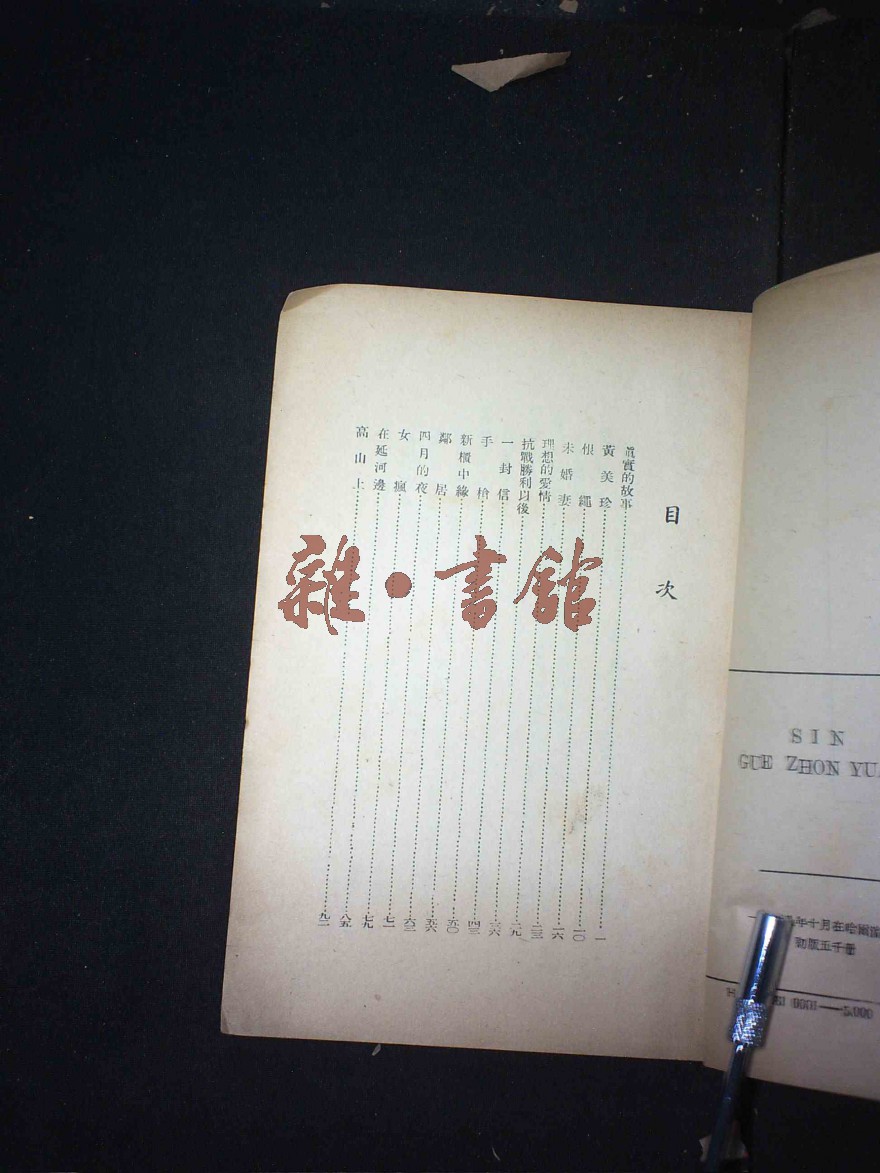 目次
眞實的故事……一
黃美珍……一〇
根繩……一六
未婚妻……二三
理想的愛情……二九
抗戰勝利以後……三六
一封信……四三
手槍……五〇
新櫃中緣……五六
鄰居……六三
四月的夜……七一
女瘋……七九
在延河邊……八五
高山上……九二
雜·書館
SIN
GUE ZHON YU
年十月在哈爾濱
初版五千冊
(900)——5.000